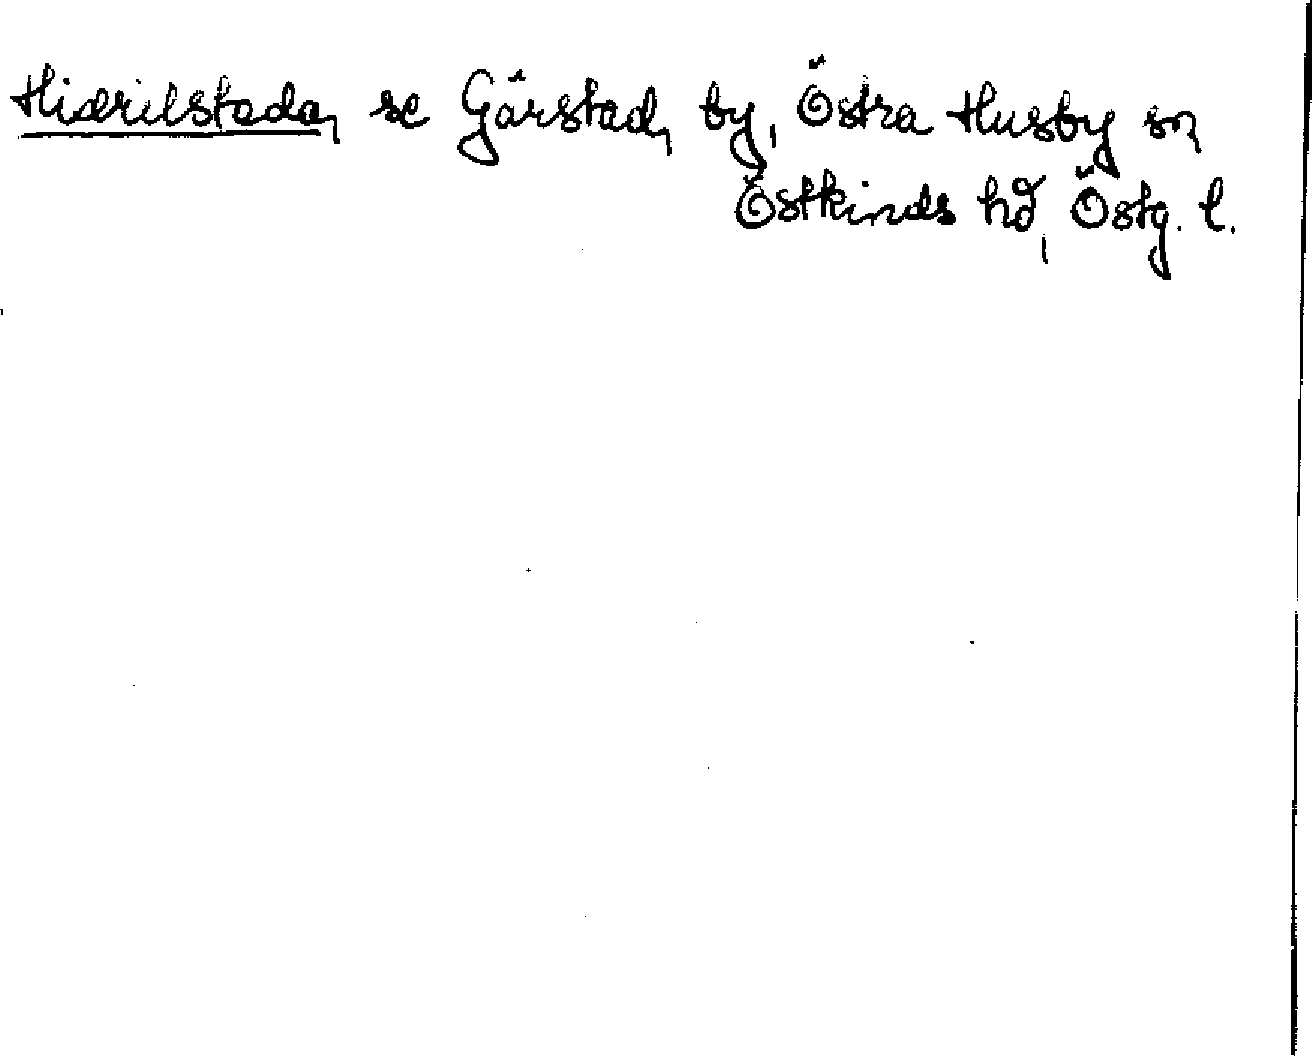 Hiærilstada, se Gärstad, by, Östra Husby sn,
Östkinds hd, Östg. l.